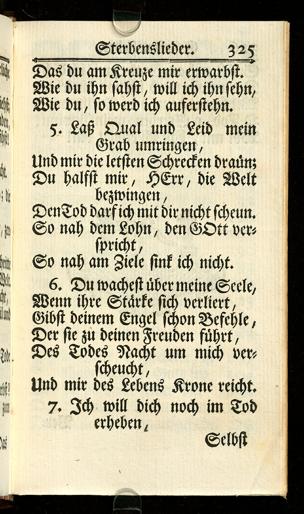 Sterbenslieder. 325
Das du am Kreuze mir erwarbst.
Wie du ihn sahst, will ich ihn sehn,
Wie du, so werd ich auferstehn.
5. Laß Qual und Leid mein
Grab umringen,
Und mir die letsten Schrecken dräun;
Du halfst mir, HErr, die Welt
bezwingen,
Den Tod darf ich mit dir nicht scheun.
So nah dem Lohn, den GOtt ver-
spricht,
So nah am Ziele sink ich nicht.
6. Du wachest über meine Seele,
Wenn ihre Stärke sich verliert,
Gibst deinem Engel schon Befehle,
Der sie zu deinen Freuden führt,
Des Todes Nacht um mich ver-
scheucht,
Und mir des Lebens Krone reicht.
7. Ich will dich noch im Tod
erheben,
Selbst